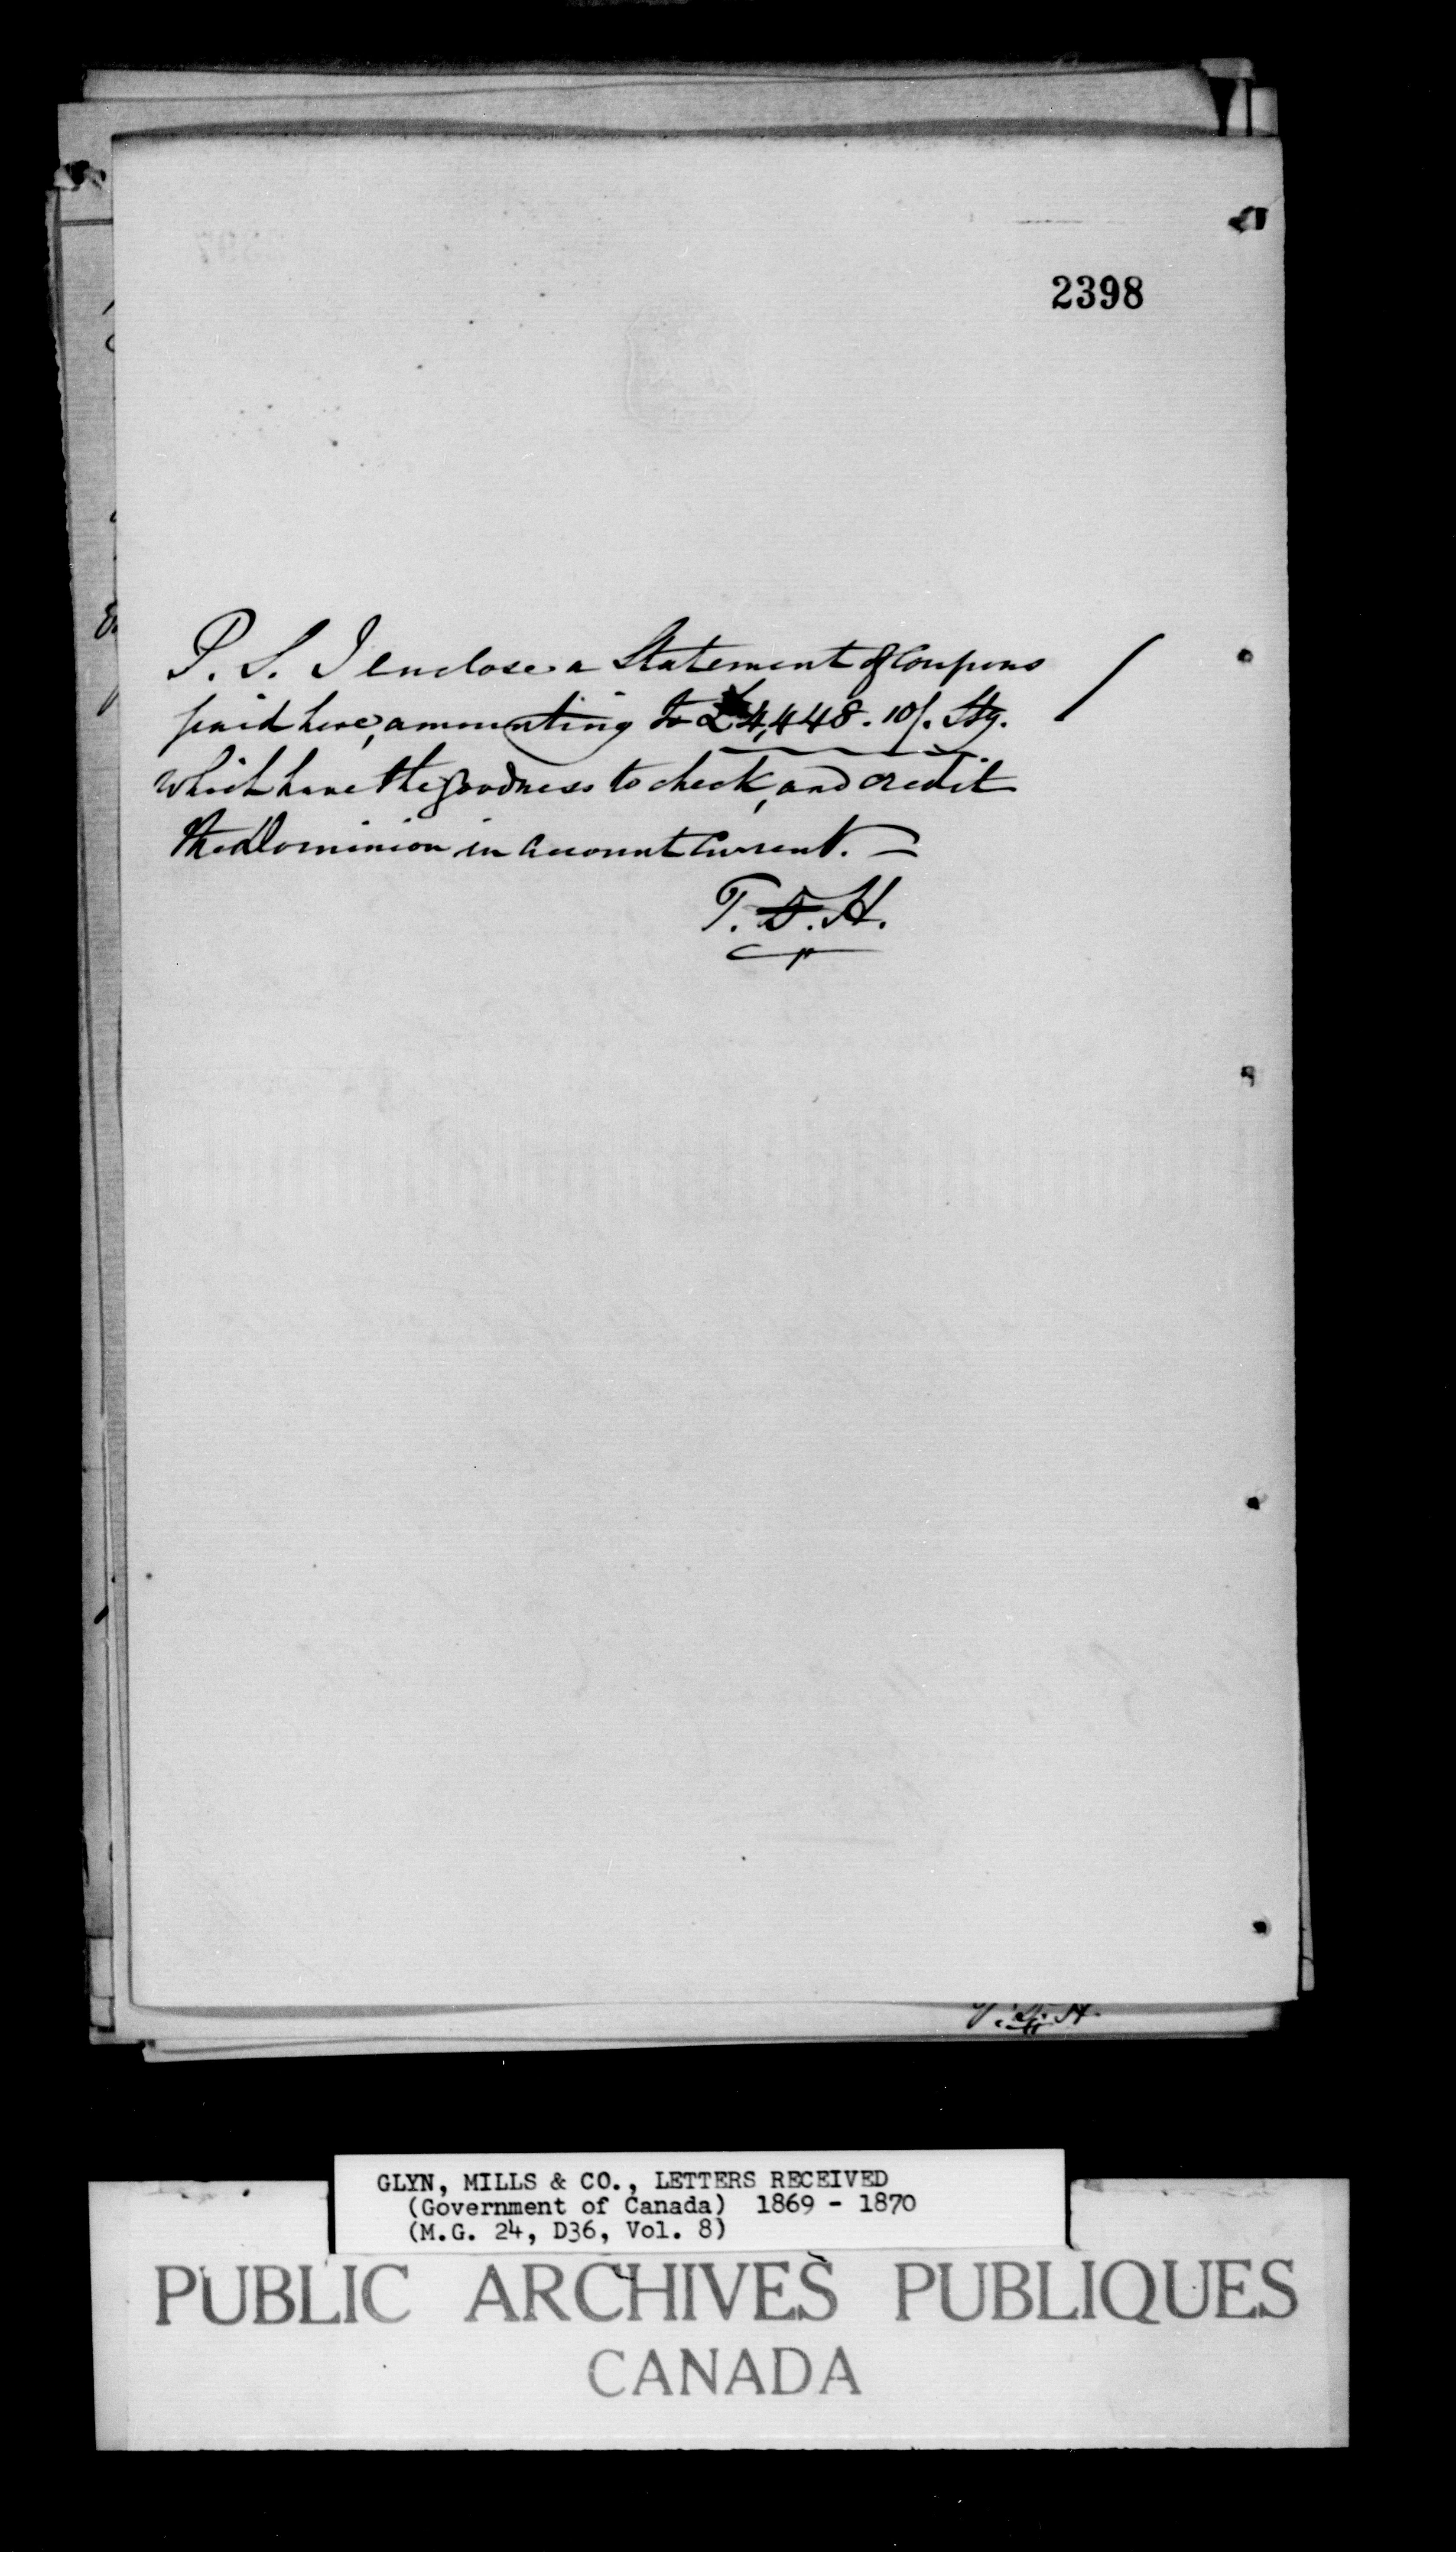 2398
P. S. I enclose a Statement of Coupons
paid here, amounting to £4,448. 10/. Stg.
which have the goodness to check, and credit
the Dominion in account Current. —
T. D. H.
T. D. H.
GLYN, MILLS & CO., LETTERS RECEIVED
(Government of Canada) 1869 - 1870
(M.G. 24, D36, Vol. 8)
PUBLIC ARCHIVES PUBLIQUES
CANADA